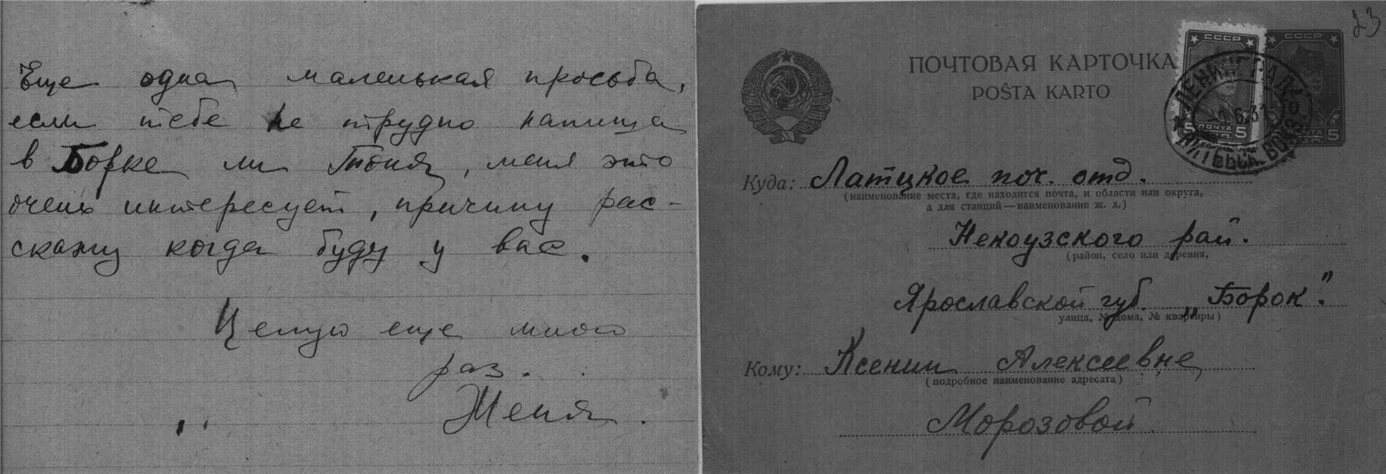 Еще одна маленькая просьба,
если тебе не трудно напиши
в Борке ли Тоня, меня это
очень интересует, причину рас-
скажу когда буду у вас.
Целую еще много
раз.
Женя.
23
СССР
ПОЧТОВАЯ КАРТОЧКА
POŜTA KARTO
ЛЕНИНГРАД
5 ПОЧТА 5
5
Куда: Латцкое поч. отд.
(наименование места, где находится почта, и области или округа,
а для станций—наименование ж. д.)
Некоузского рай.
(район, село или деревня,
Ярославской губ. „Борок".
улица, № дома, № квартиры)
Кому: Ксении Алексеевне
(подробное наименование адресата)
Морозовой